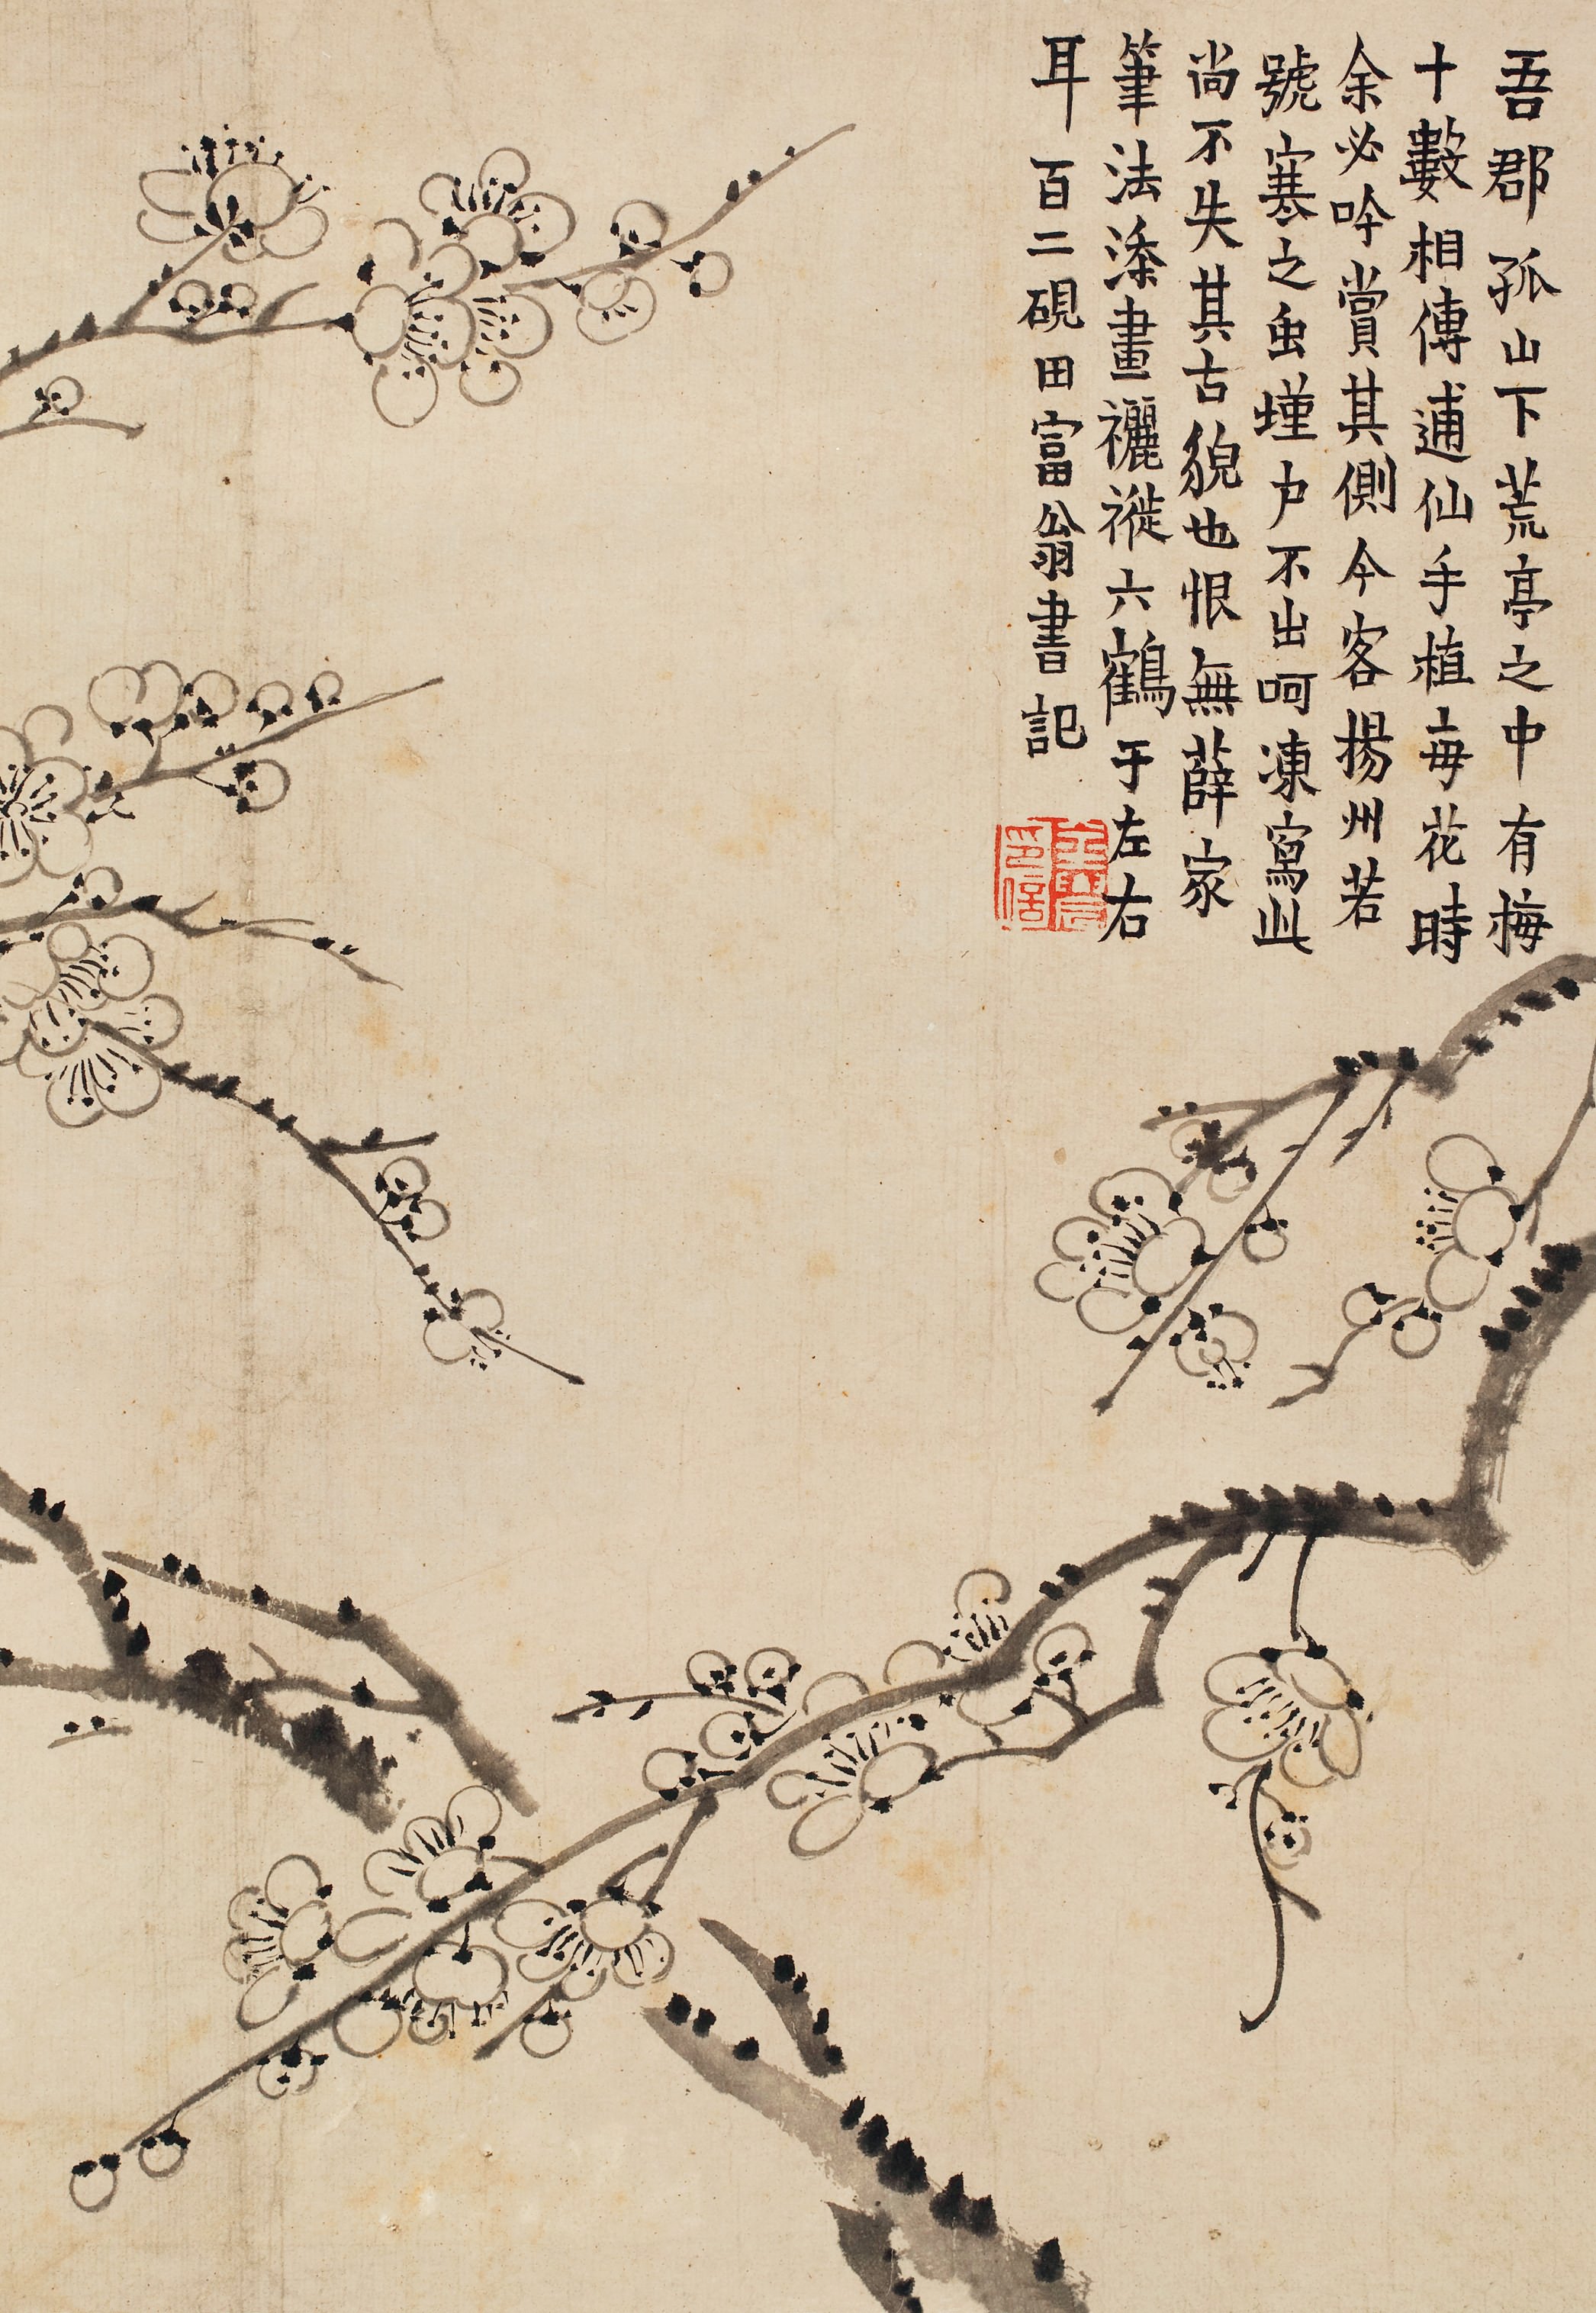 吾郡孤山下荒亭之中有梅
十數相傳逋仙手植每花時
余必吟賞其側今客揚州若
號寒之虫墐户不出呵凍寫此
尚不失其古貌也恨無薛家
筆法添畫襹褷六鶴于左右
耳百二硯田富翁書記